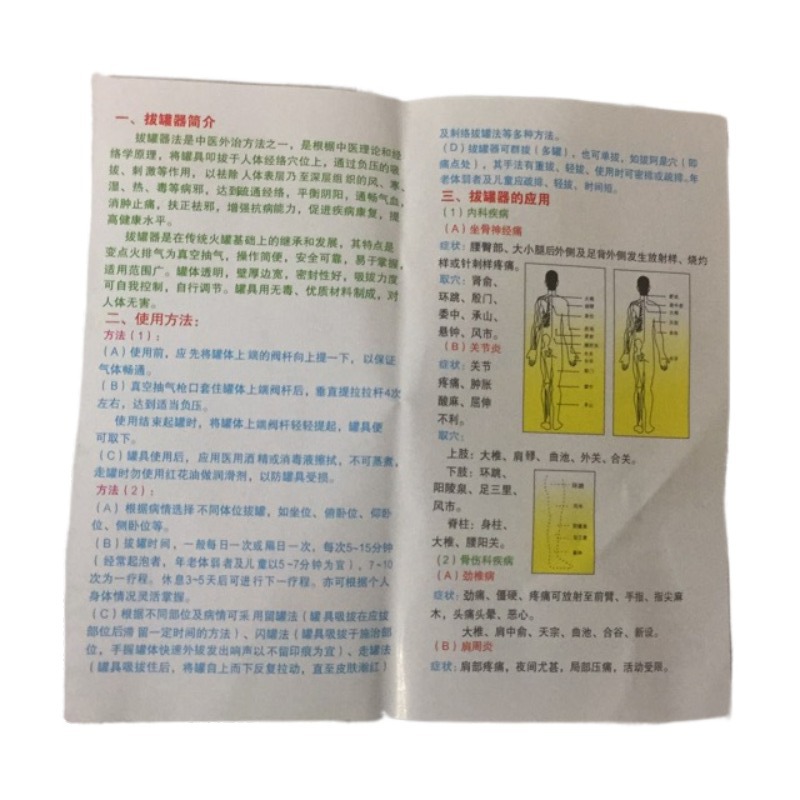 一、拔罐器简介
拔罐器法是中医外治方法之一，是根据中医理论和经
络学原理，将罐具叩拔于人体经络穴位上，通过负压的吸
拔、刺激等作用，以祛除人体表层乃至深层组织的风、寒、
湿、热、毒等病邪，达到疏通经络，平衡阴阳，通畅气血，
消肿止痛，扶正祛邪，增强抗病能力，促进疾病康复，提
高健康水平。
拔罐器是在传统火罐基础上的继承和发展，其特点是
变点火排气为真空抽气，操作简便，安全可靠，易于掌握，
适用范围广。罐体透明，壁厚边宽，密封性好，吸拔力度
可自我控制，自行调节。罐具用无毒、优质材料制成，对
人体无害。
二、使用方法：
方法（1）：
（A）使用前，应先将罐体上端的阀杆向上提一下，以保证
气体畅通。
（B）真空抽气枪口套住罐体上端阀杆后，垂直提拉拉杆4次
左右，达到适当负压。
使用结束起罐时，将罐体上端阀杆轻轻提起，罐具便
可取下。
（C）罐具使用后，应用医用酒精或消毒液擦拭，不可蒸煮，
走罐时勿使用红花油做润滑剂，以防罐具受损。
方法（2）：
（A）根据病情选择不同体位拔罐，如坐位、俯卧位、仰卧
位、侧卧位等。
（B）拔罐时间，一般每日一次或隔日一次，每次5~15分钟
（经常起泡者，年老体弱者及儿童以5~7分钟为宜），7~10
次为一疗程。休息3~5天后可进行下一疗程。亦可根据个人
身体情况灵活掌握。
（C）根据不同部位及病情可采用留罐法（罐具吸拔在应拔
部位后滞留一定时间的方法）、闪罐法（罐具吸拔于施治部
位，手握罐体快速外拔发出响声以不留印痕为宜）、走罐法
（罐具吸拔住后，将罐自上而下反复拉动，直至皮肤潮红）
及刺络拔罐法等多种方法。
（D）拔罐器可群拔（多罐），也可单拔，如拔阿是穴（即
痛点处），其手法有重拔、轻拔，使用时可密排或疏排，年
老体弱者及儿童应疏排、轻拔、时间短。
三、拔罐器的应用
（1）内科疾病
（A）坐骨神经痛
症状：腰臀部、大小腿后外侧及足背外侧发生放射样、烧灼
样或针刺样疼痛。
取穴：肾俞、
环跳、殷门、
委中、承山、
悬钟、风市。
（B）关节炎
症状：关节
疼痛、肿胀
酸麻、屈伸
不利。
取穴：
上肢：大椎、肩髎、曲池、外关、合关。
下肢：环跳、
阳陵泉、足三里、
风市。
脊柱：身柱、
大椎、腰阳关。
（2）骨伤科疾病
（A）劲椎病
症状：劲痛、僵硬、疼痛可放射至前臂、手指、指尖麻
木，头痛头晕、恶心。
大椎、肩中俞、天宗、曲池、合谷、新设。
（B）肩周炎
症状：肩部疼痛，夜间尤甚，局部压痛，活动受限。